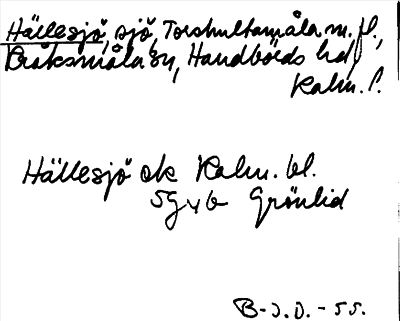 Hällesjö, sjö, Torshultamåla m. fl.,
Bråksmåla sn, Handbörds hd
Kalm. l.
Hällesjö ek Kalm. bl.
5G y b Grönlid
B-J.D. - 55.